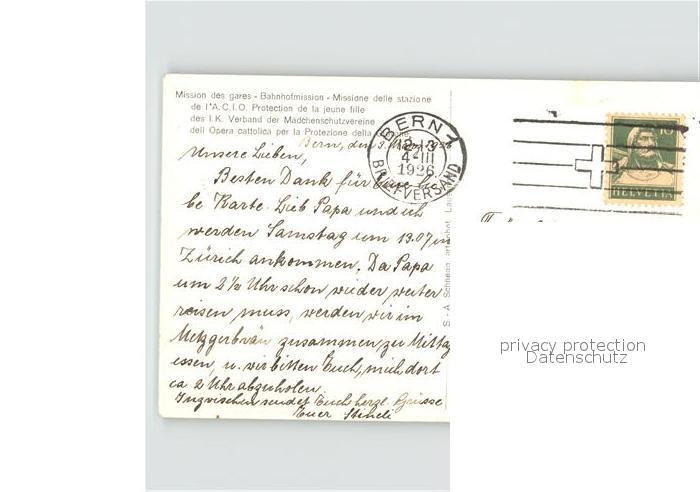 Mission des gares - Bahnhofmission - Missione delle stazione
de l'A.C.I.O. Protection de la jeune fille
des I.K. Verband der Mädchenschutzvereine
dell Opera cattolica per la Protezione della
Bern, den 3. März 1926
Unsere Lieben,
Besten Dank für Eure lie-
be Karte. Lieb Papa und ich
werden Samstag um 13.07 in
Zürich ankommen. Da Papa
um 2½ Uhr schon wieder weiter
reisen muss, werden wir im
Metzgerbräu zusammen zu Mittag
essen, u. wir bitten Euch, mich dort
ca 2 Uhr abzuholen.
Inzwischen sendet Euch herzl. Grüsse
Euer
BERN 1
12-13
4-III
1926
BRIEFVERSAND
10
HELVETIA
privacy protection
Datenschutz